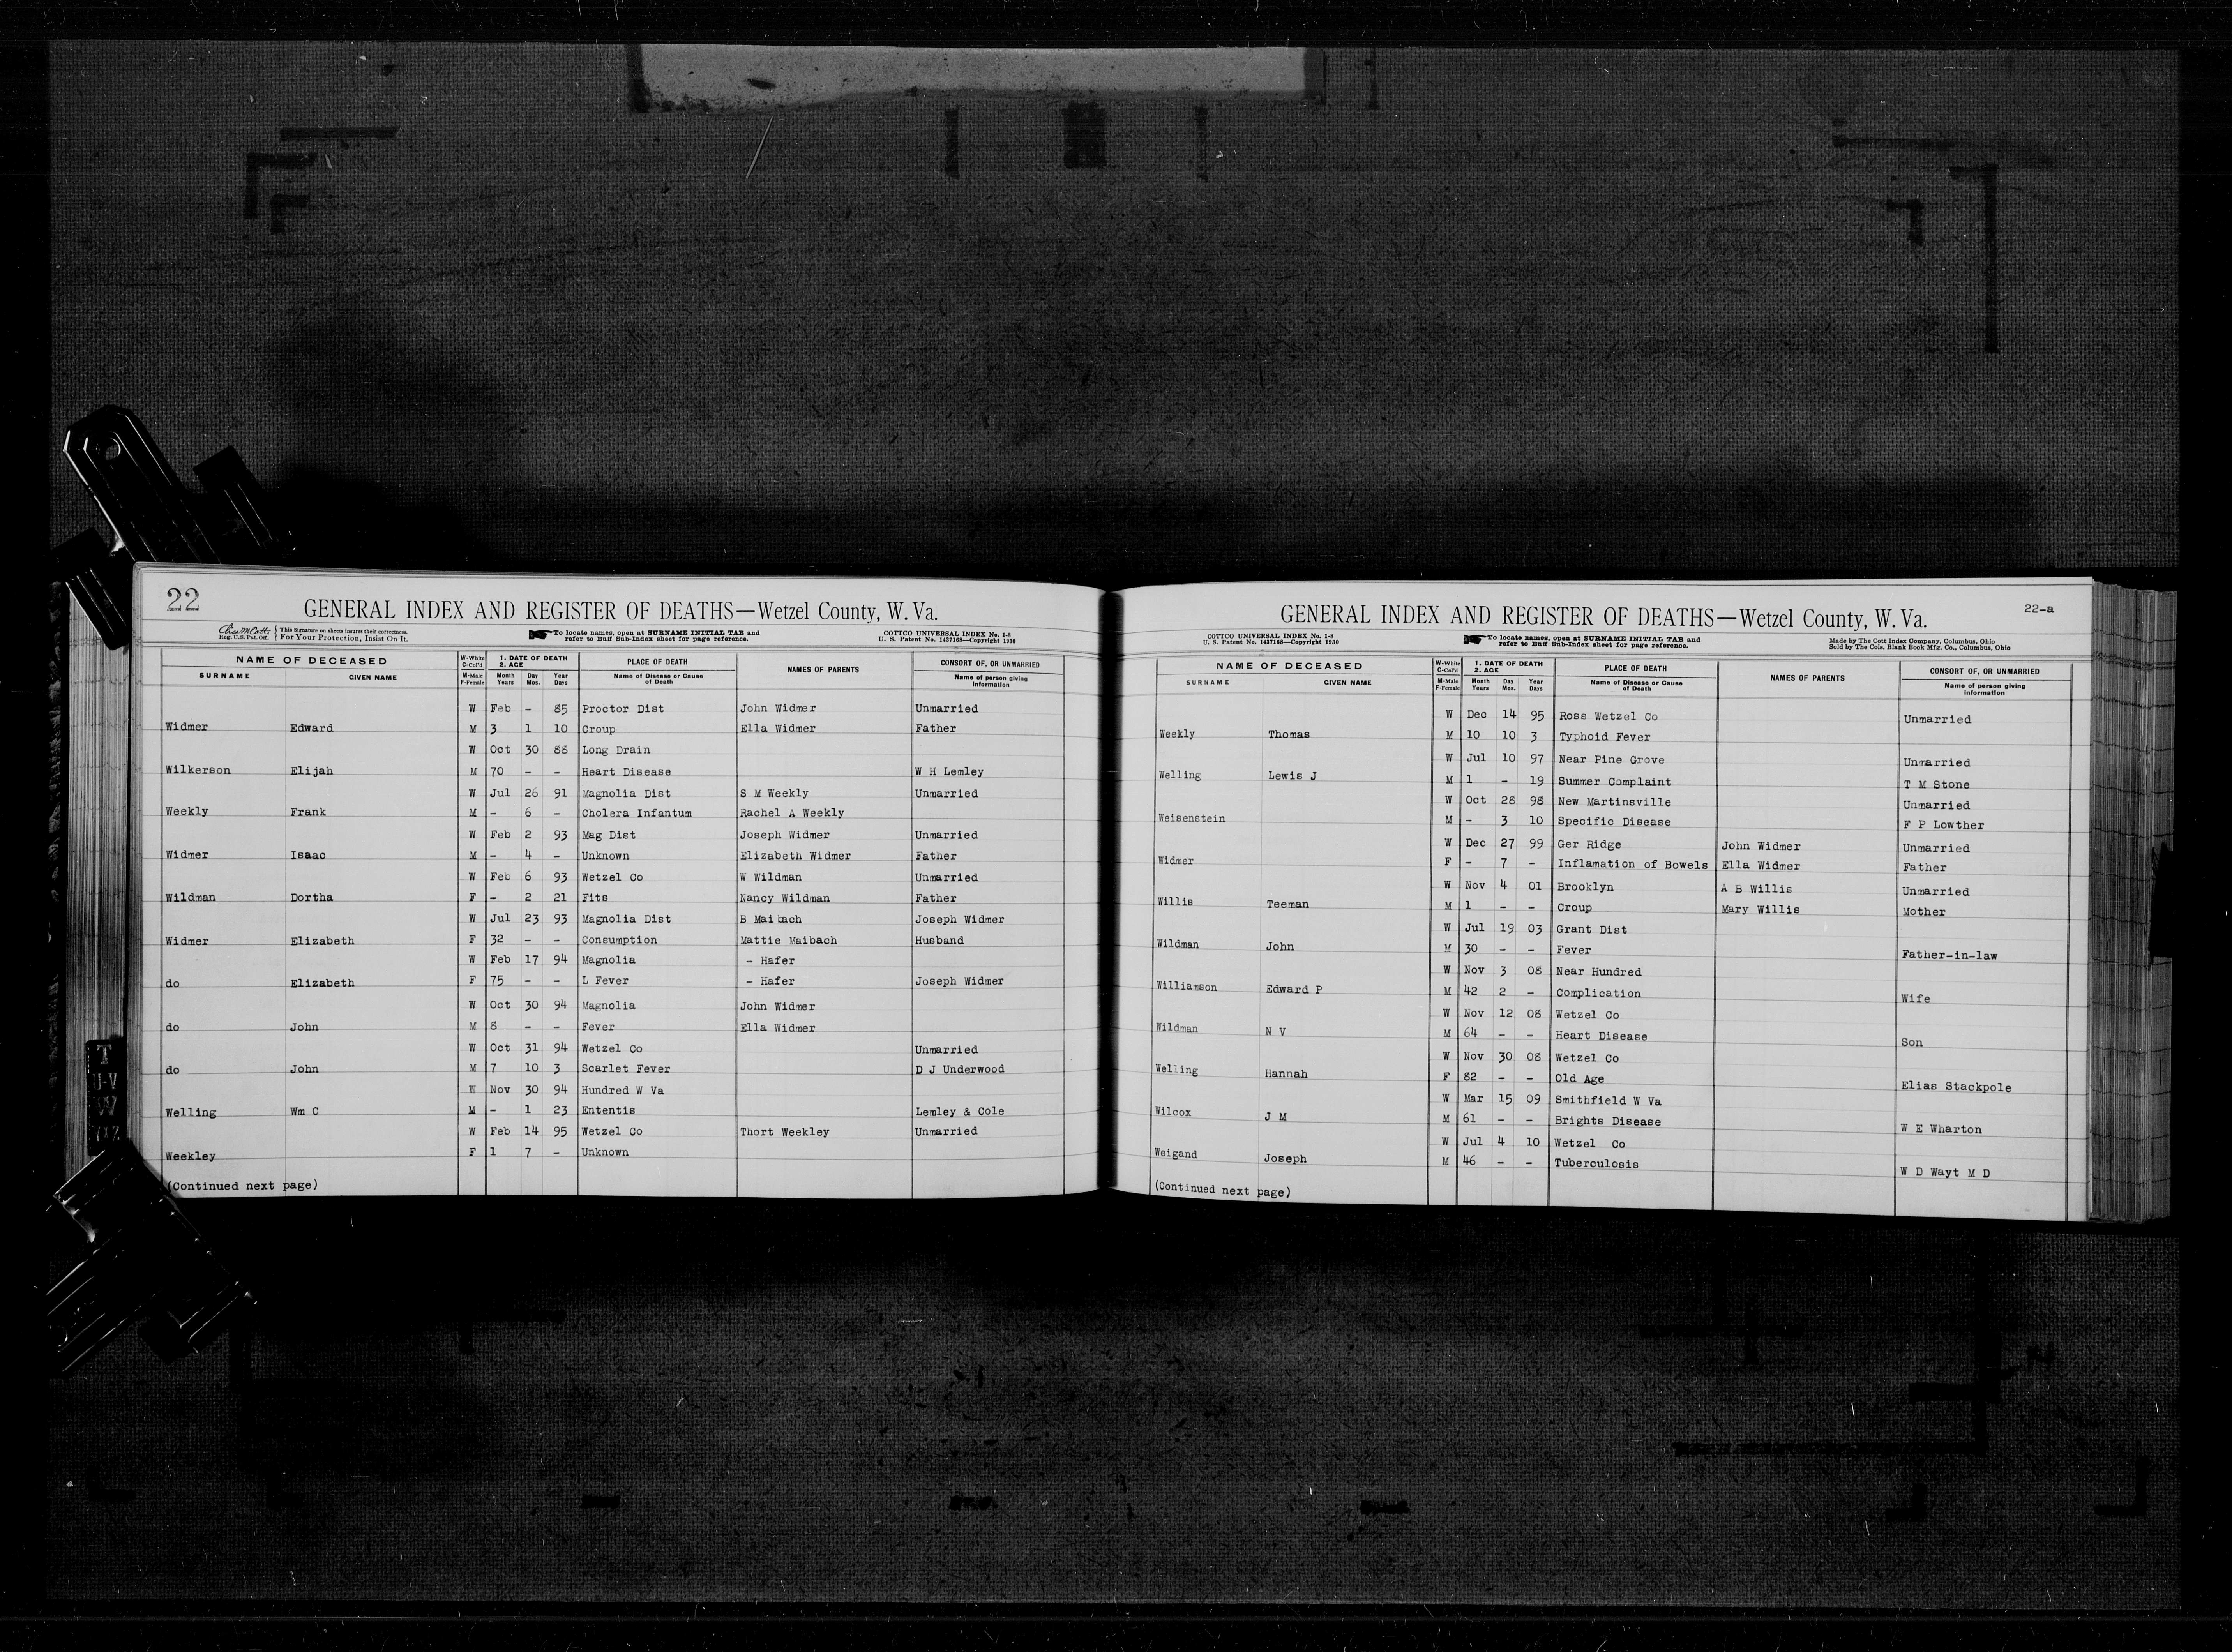 22
GENERAL INDEX AND REGISTER OF DEATHS—Wetzel County, W. Va.
Reg. U.S. Pat. Off. { This Signature on sheets insures their correctness. For Your Protection, Insist On It.
To locate names, open at SURNAME INITIAL TAB and refer to Buff Sub-Index sheet for page reference.
COTTCO UNIVERSAL INDEX No. 1-8
U. S. Patent No. 1437168—Copyright 1930
NAME OF DECEASED W-White C-Col'd 1. DATE OF DEATH 2. AGE PLACE OF DEATH NAMES OF PARENTS CONSORT OF, OR UNMARRIED
SURNAME GIVEN NAME M-Male F-Female Month Years Day Mos. Year Days Name of Disease or Cause of Death Name of person giving information
W Feb - 85 Proctor Dist John Widmer Unmarried
Widmer Edward M 3 1 10 Croup Ella Widmer Father
W Oct 30 88 Long Drain
Wilkerson Elijah M 70 - - Heart Disease W H Lemley
W Jul 26 91 Magnolia Dist S M Weekly Unmarried
Weekly Frank M - 6 - Cholera Infantum Rachel A Weekly
W Feb 2 93 Mag Dist Joseph Widmer Unmarried
Widmer Isaac M - 4 - Unknown Elizabeth Widmer Father
W Feb 6 93 Wetzel Co W Wildman Unmarried
Wildman Dortha F - 2 21 Fits Nancy Wildman Father
W Jul 23 93 Magnolia Dist B Maibach Joseph Widmer
Widmer Elizabeth F 32 - - Consumption Mattie Maibach Husband
W Feb 17 94 Magnolia - Hafer
do Elizabeth F 75 - - L Fever - Hafer Joseph Widmer
W Oct 30 94 Magnolia John Widmer
do John M 8 - - Fever Ella Widmer
W Oct 31 94 Wetzel Co Unmarried
do John M 7 10 3 Scarlet Fever D J Underwood
W Nov 30 94 Hundred W Va
Welling Wm C M - 1 23 Ententis Lemley & Cole
W Feb 14 95 Wetzel Co Thort Weekley Unmarried
Weekley F 1 7 - Unknown
(Continued next page)
T
U-V
W
22-a
GENERAL INDEX AND REGISTER OF DEATHS—Wetzel County, W. Va.
COTTCO UNIVERSAL INDEX No. 1-8
U. S. Patent No. 1437168—Copyright 1930
To locate names, open at SURNAME INITIAL TAB and refer to Buff Sub-Index sheet for page reference.
Made by The Cott Index Company, Columbus, Ohio
Sold by The Cols. Blank Book Mfg. Co., Columbus, Ohio
NAME OF DECEASED W-White C-Col'd 1. DATE OF DEATH 2. AGE PLACE OF DEATH NAMES OF PARENTS CONSORT OF, OR UNMARRIED
SURNAME GIVEN NAME M-Male F-Female Month Years Day Mos. Year Days Name of Disease or Cause of Death Name of person giving information
W Dec 14 95 Ross Wetzel Co Unmarried
Weekly Thomas M 10 10 3 Typhoid Fever
W Jul 10 97 Near Pine Grove Unmarried
Welling Lewis J M 1 - 19 Summer Complaint T M Stone
W Oct 28 98 New Martinsville Unmarried
Weisenstein M - 3 10 Specific Disease F P Lowther
W Dec 27 99 Ger Ridge John Widmer Unmarried
Widmer F - 7 - Inflamation of Bowels Ella Widmer Father
W Nov 4 01 Brooklyn A B Willis Unmarried
Willis Teeman M 1 - - Croup Mary Willis Mother
W Jul 19 03 Grant Dist
Wildman John M 30 - - Fever Father-in-law
W Nov 3 08 Near Hundred
Williamson Edward P M 42 2 - Complication Wife
W Nov 12 08 Wetzel Co
Wildman N V M 64 - - Heart Disease Son
W Nov 30 08 Wetzel Co
Welling Hannah F 82 - - Old Age Elias Stackpole
W Mar 15 09 Smithfield W Va
Wilcox J M M 61 - - Brights Disease W E Wharton
W Jul 4 10 Wetzel Co
Weigand Joseph M 46 - - Tuberculosis W D Wayt M D
(Continued next page)